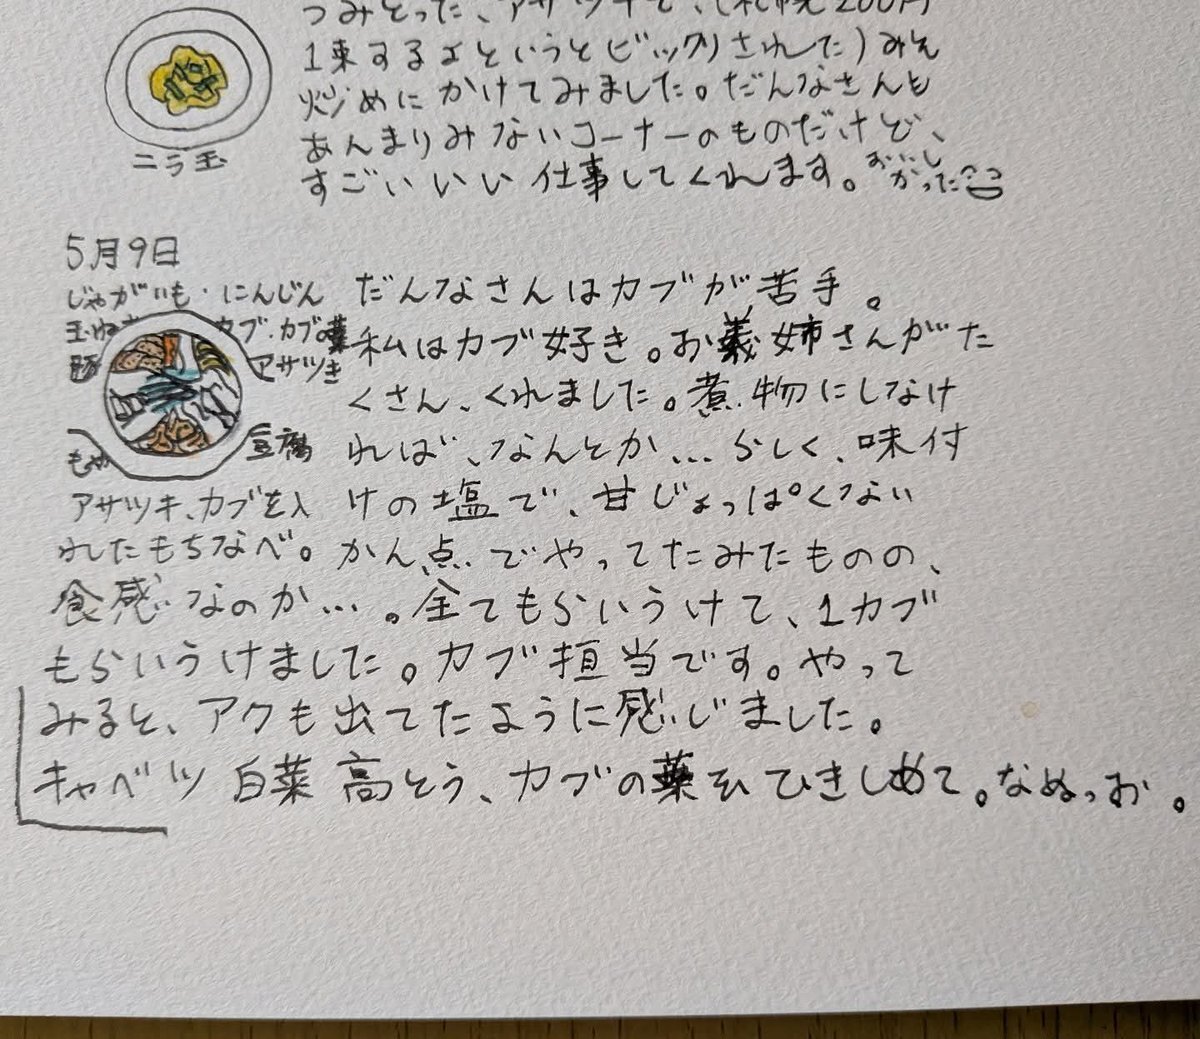 つみとった、アサツキを、(札幌200円
1束するよというとビックリされた)みそ
炒めにかけてみました。だんなさんと
あんまりみないコーナーのものだけど、
すごいいい仕事してくれます。おいしかった
ニラ玉
5月9日
じゃがいも・にんじん
玉ねぎ カブ・カブの葉
豚 アサツキ
もや 豆腐
アサツキ、カブを入
れたもちなべ。
だんなさんはカブが苦手。
私はカブ好き。お義姉さんがた
くさん、くれました。煮物にしなけ
れば、なんとか…らしく、味付
けの塩で、甘じょっぱくない
かん点でやってたみたものの、
食感なのか…。全てもらいうけて、1カブ
もらいうけました。カブ担当です。やって
みると、アクも出てたように感じました。
キャベツ 白菜 高とう、カブの葉をひきしめて。なぬっお。